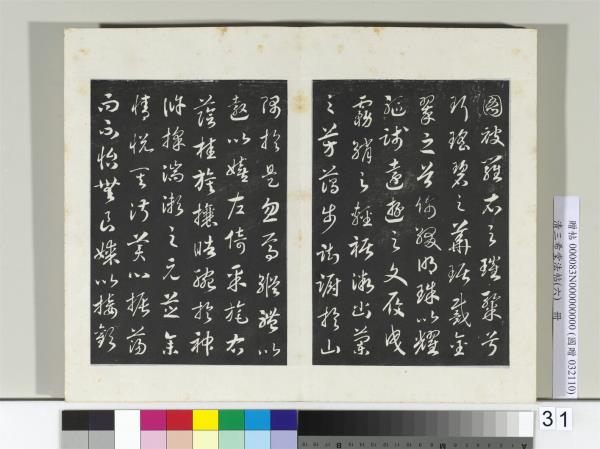 圖披羅衣之璀粲兮
珥瑤碧之華琚戴金
翠之首飾綴明珠以耀
軀踐遠遊之文履曳
霧綃之輕裾微幽蘭
之芳藹步踟躕於山
隅於是忽焉縱體以
遨以嬉左倚采旄右
蔭桂旗攘皓腕於神
滸採湍瀨之元芝余
情悅其淑美心振蕩
而不怡無良媒以接歡
贈帖 000083N000000000 (國贈 032110)
清三希堂法帖(六) 冊
31